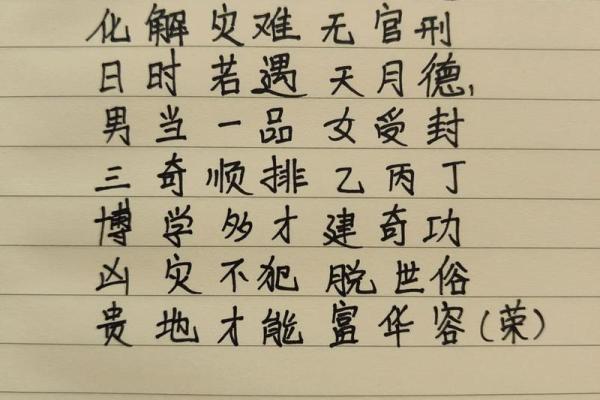 化解灾难无官刑
日时若遇天月德,
男当一品女受封
三奇顺排乙丙丁
博学多才建奇功
凶灾不犯脱世俗
贵地才能富华容(荣)